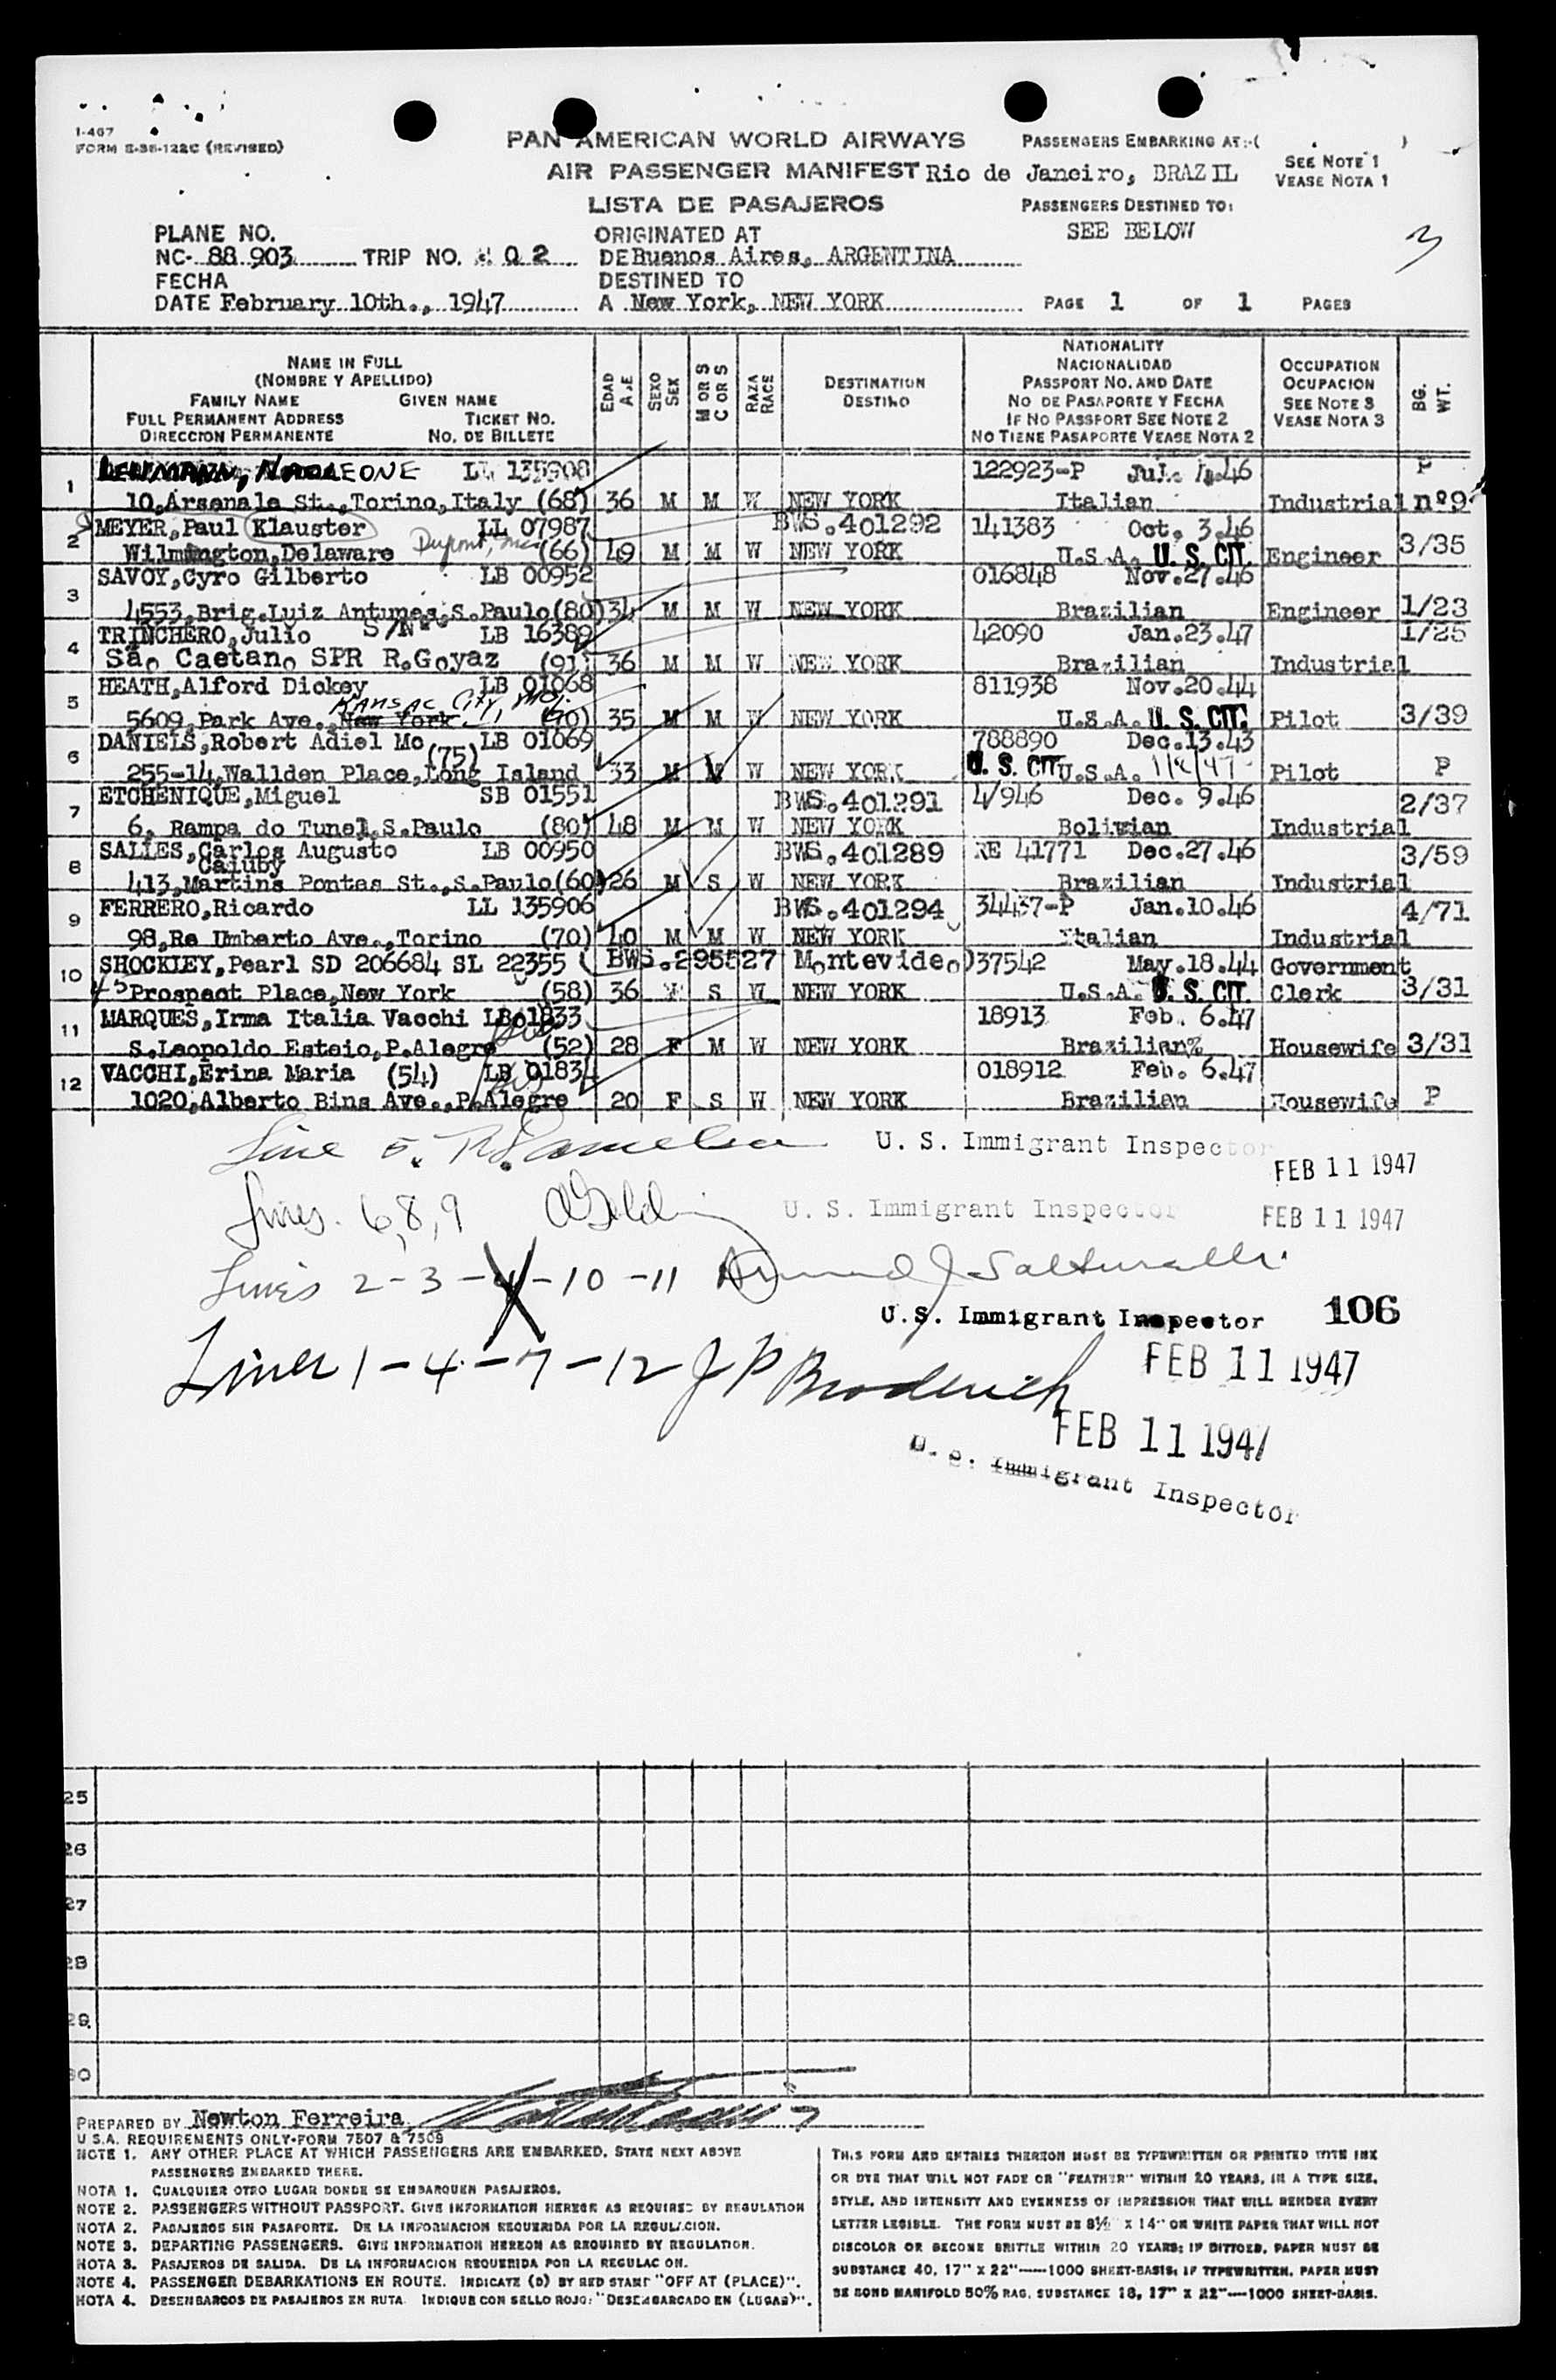 I-467
FORM E-35-122C (REVISED)
PAN AMERICAN WORLD AIRWAYS
AIR PASSENGER MANIFEST
LISTA DE PASAJEROS
PASSENGERS EMBARKING AT:-( )
Rio de Janeiro, BRAZIL
SEE NOTE 1
VEASE NOTA 1
PASSENGERS DESTINED TO:
SEE BELOW
3
PLANE NO.
NC- 88 903 TRIP NO. 02
FECHA
DATE February 10th., 1947
ORIGINATED AT
DE Buenos Aires, ARGENTINA
DESTINED TO
A New York, NEW YORK
PAGE 1 OF 1 PAGES
NAME IN FULL
(NOMBRE Y APELLIDO)
FAMILY NAME GIVEN NAME
FULL PERMANENT ADDRESS TICKET NO.
DIRECCION PERMANENTE NO. DE BILLETE
EDAD AGE
SEXO SEX
M OR S C OR S
RAZA RACE
DESTINATION
DESTINO
NATIONALITY
NACIONALIDAD
PASSPORT NO. AND DATE
NO DE PASAPORTE Y FECHA
IF NO PASSPORT SEE NOTE 2
NO TIENE PASAPORTE VEASE NOTA 2
OCCUPATION
OCUPACION
SEE NOTE 3
VEASE NOTA 3
BG. WT.
1 NAPOLEONE LL 135908 122923-P Jul. 46 P
10, Arsenale St., Torino, Italy (68) 36 M M W NEW YORK Italian Industrial nº9
2 MEYER, Paul Klauster LL 07987 BWS.401292 141383 Oct. 3.46
Wilmington, Delaware Dupont, (66) 49 M M W NEW YORK U.S.A. U. S. CIT. Engineer 3/35
3 SAVOY, Cyro Gilberto LB 00952 016848 Nov.27.46
4553, Brig. Luiz Antunes, S.Paulo (80) 34 M M W NEW YORK Brazilian Engineer 1/23
4 TRINCHERO, Julio S/N LB 16389 42090 Jan.23.47 1/25
São Caetano SPR R.Goyaz (91) 36 M M W NEW YORK Brazilian Industrial
5 HEATH, Alford Dickey LB 01068 811938 Nov.20.44
5609, Park Ave., New York KANSAS City, MO. (70) 35 M M W NEW YORK U.S.A. U. S. CIT. Pilot 3/39
6 DANIELS, Robert Adiel Mc (75) LB 01069 788890 Dec.13.43
255-14, Wallden Place, Long Island 33 M M W NEW YORK U. S. CIT U.S.A. Pilot P
7 ETCHENIQUE, Miguel SB 01551 BWS.401291 4/946 Dec. 9.46 2/37
6, Rampa do Tunel, S.Paulo (80) 48 M M W NEW YORK Bolivian Industrial
8 SALLES, Carlos Augusto LB 00950 BWS.401289 RE 41771 Dec.27.46 3/59
Caiuby
413, Martins Pontes St., S.Paulo (60) 26 M S W NEW YORK Brazilian Industrial
9 FERRERO, Ricardo LL 135906 BWS.401294 34437-P Jan.10.46 4/71
98, Re Umberto Ave., Torino (70) 40 M M W NEW YORK Italian Industrial
10 SHOCKLEY, Pearl SD 206684 SL 22355 (BWS.295527 Montevideo) 37542 May.18.44 Government
45 Prospect Place, New York (58) 36 F S W NEW YORK U.S.A. U. S. CIT. Clerk 3/31
11 MARQUES, Irma Italia Vacchi LB01833 18913 Feb. 6.47
S.Leopoldo Esteio, P.Alegre (52) 28 F M W NEW YORK Brazilian% Housewife 3/31
12 VACCHI, Erina Maria (54) LB 01834 018912 Feb. 6.47
1020, Alberto Bins Ave., P.Alegre 20 F S W NEW YORK Brazilian Housewife P
Line 5. U. S. Immigrant Inspector
FEB 11 1947
Lines. 6,8,9 U. S. Immigrant Inspector FEB 11 1947
Lines 2-3-4-10-11
U.S. Immigrant Inspector 106
FEB 11 1947
Lines 1-4-7-12 J P Broderick
FEB 11 1947
U. S. Immigrant Inspector
25
26
27
28
29
30
PREPARED BY Newton Ferreira
U S.A. REQUIREMENTS ONLY-FORM 7507 & 7509
NOTE 1. ANY OTHER PLACE AT WHICH PASSENGERS ARE EMBARKED. STATE NEXT ABOVE
PASSENGERS EMBARKED THERE.
NOTA 1. CUALQUIER OTRO LUGAR DONDE SE EMBARQUEN PASAJEROS.
NOTE 2. PASSENGERS WITHOUT PASSPORT. GIVE INFORMATION HEREON AS REQUIRED BY REGULATION
NOTA 2. PASAJEROS SIN PASAPORTE. DE LA INFORMACION REQUERIDA POR LA REGULACION.
NOTE 3. DEPARTING PASSENGERS. GIVE INFORMATION HEREON AS REQUIRED BY REGULATION.
NOTA 3. PASAJEROS DE SALIDA. DE LA INFORMACION REQUERIDA POR LA REGULAC ON.
NOTE 4. PASSENGER DEBARKATIONS EN ROUTE. INDICATE (D) BY RED STAMP "OFF AT (PLACE)".
NOTA 4. DESEMBARCOS DE PASAJEROS EN RUTA INDIQUE CON SELLO ROJO: "DESEMBARCADO EN (LUGAR)".
THIS FORM AND ENTRIES THEREON MUST BE TYPEWRITTEN OR PRINTED WITH INK
OR DYE THAT WILL NOT FADE OR "FEATHER" WITHIN 20 YEARS, IN A TYPE SIZE,
STYLE, AND INTENSITY AND EVENNESS OF IMPRESSION THAT WILL RENDER EVERY
LETTER LEGIBLE. THE FORM MUST BE 8½" X 14" ON WHITE PAPER THAT WILL NOT
DISCOLOR OR BECOME BRITTLE WITHIN 20 YEARS; IF DITTOED, PAPER MUST BE
SUBSTANCE 40, 17" X 22"——1000 SHEET-BASIS; IF TYPEWRITTEN, PAPER MUST
BE BOND MANIFOLD 50% RAG, SUBSTANCE 16, 17" X 22"——1000 SHEET-BASIS.